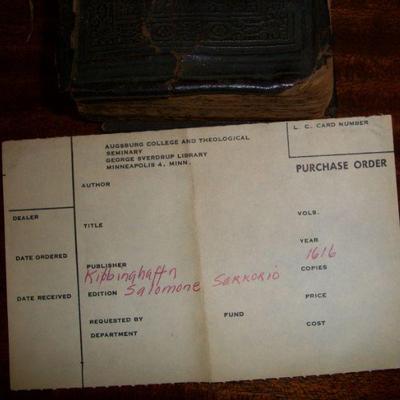 L. C. CARD NUMBER
AUGSBURG COLLEGE AND THEOLOGICAL
SEMINARY
GEORGE SVERDRUP LIBRARY
MINNEAPOLIS 4, MINN.
PURCHASE ORDER
AUTHOR
DEALER
VOLS.
TITLE
YEAR
1616
DATE ORDERED
PUBLISHER
COPIES
Kißbinghaftn
Salomone Serrorio
DATE RECEIVED
EDITION
PRICE
REQUESTED BY
FUND
COST
DEPARTMENT